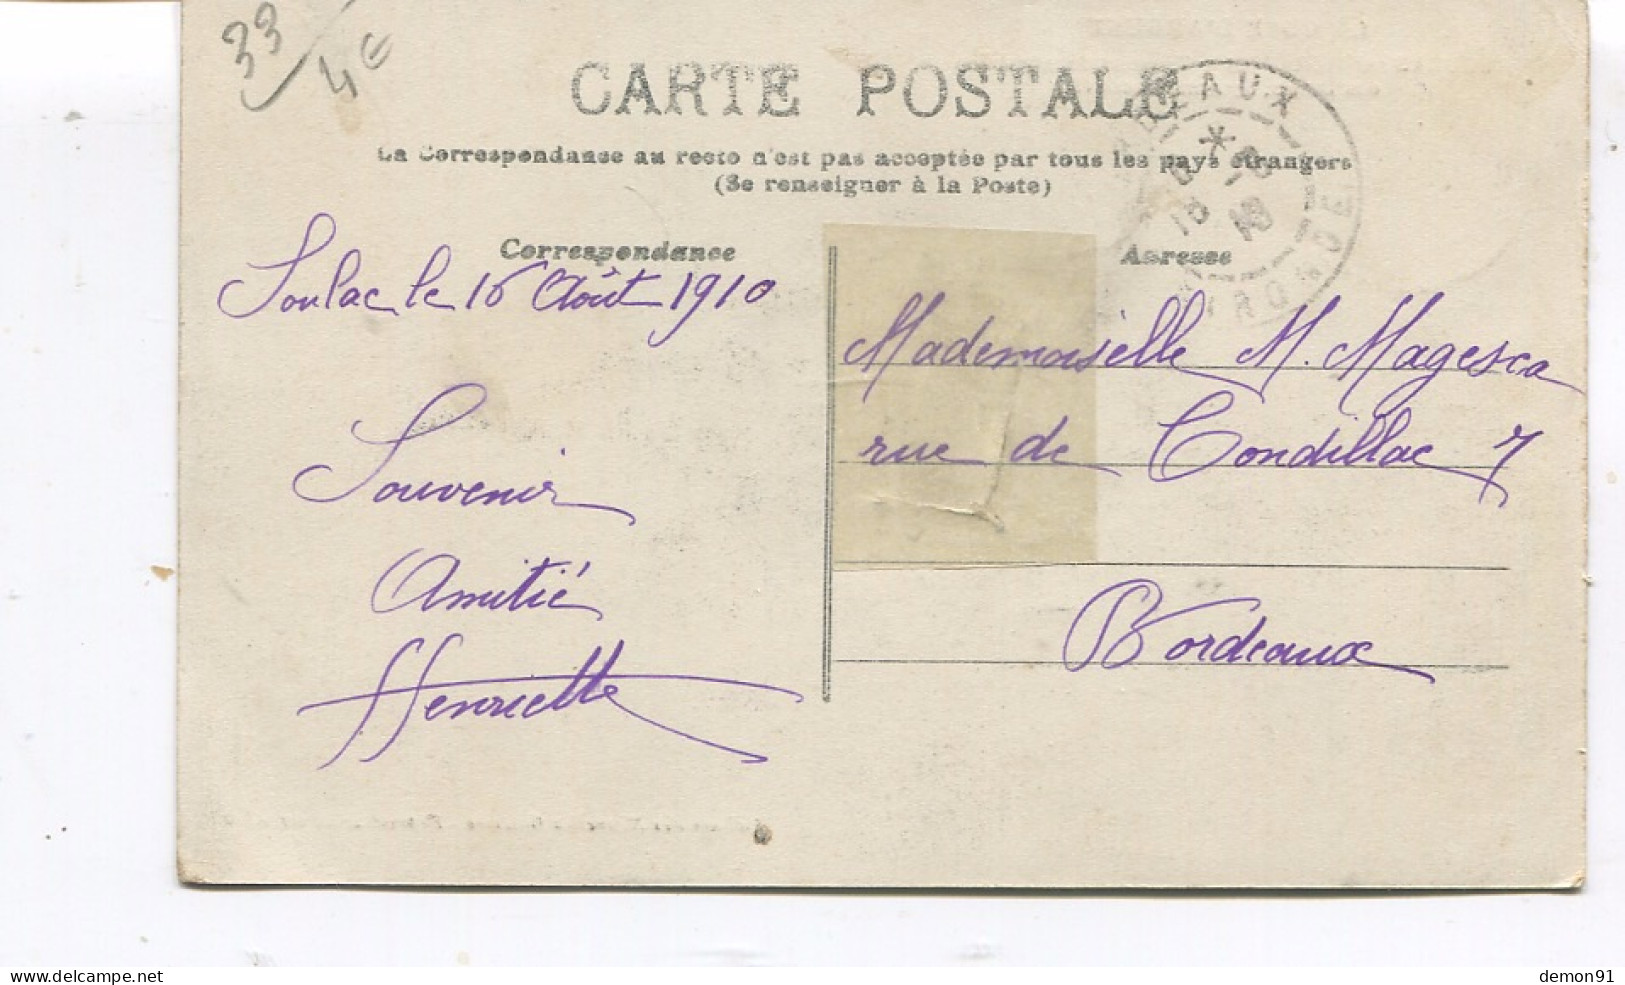 33
4€
CARTE POSTALE
La Correspondance au recto n'est pas acceptée par tous les pays étrangers
(Se renseigner à la Poste)
Correspondance
Soulac le 16 Août 1910
Souvenir
Amitié
Henriette
Adresse
Mademoiselle M. Magesca
rue de Condillac 7
Bordeaux
BORDEAUX
GIRONDE
www.delcampe.net
demon91